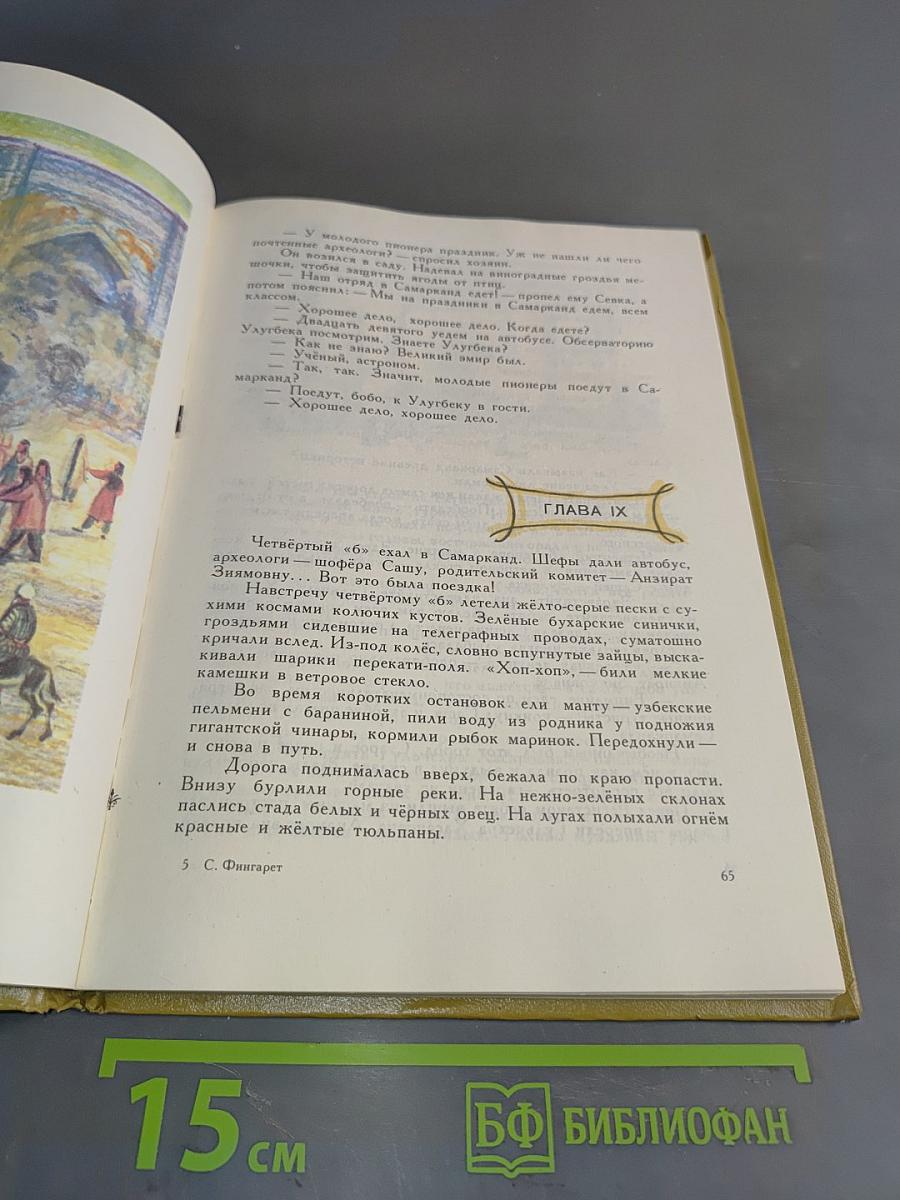 — У молодого пионера праздник. Уж не нашли ли чего
почтенные археологи? — спросил хозяин.
Он возился в саду. Надевал на виноградные гроздья ме-
шочки, чтобы защитить ягоды от птиц.
— Наш отряд в Самарканд едет! — пропел ему Севка, а
потом пояснил: — Мы на праздники в Самарканд едем, всем
классом.
— Хорошее дело, хорошее дело. Когда едете?
— Двадцать девятого уедем на автобусе. Обсерваторию
Улугбека посмотрим. Знаете Улугбека?
— Как не знаю? Великий эмир был.
— Учёный, астроном.
— Так, так. Значит, молодые пионеры поедут в Са-
марканд?
— Поедут, бобо, к Улугбеку в гости.
— Хорошее дело, хорошее дело.
ГЛАВА IX
Четвёртый «б» ехал в Самарканд. Шефы дали автобус,
археологи — шофёра Сашу, родительский комитет — Анзират
Зиямовну... Вот это была поездка!
Навстречу четвёртому «б» летели жёлто-серые пески с су-
хими космами колючих кустов. Зелёные бухарские синички,
гроздьями сидевшие на телеграфных проводах, суматошно
кричали вслед. Из-под колёс, словно вспугнутые зайцы, выска-
кивали шарики перекати-поля. «Хоп-хоп», — били мелкие
камешки в ветровое стекло.
Во время коротких остановок ели манту — узбекские
пельмени с бараниной, пили воду из родника у подножия
гигантской чинары, кормили рыбок маринок. Передохнули —
и снова в путь.
Дорога поднималась вверх, бежала по краю пропасти.
Внизу бурлили горные реки. На нежно-зелёных склонах
паслись стада белых и чёрных овец. На лугах полыхали огнём
красные и жёлтые тюльпаны.
5 С. Фингарет
65
15 см
БФ БИБЛИОФАН